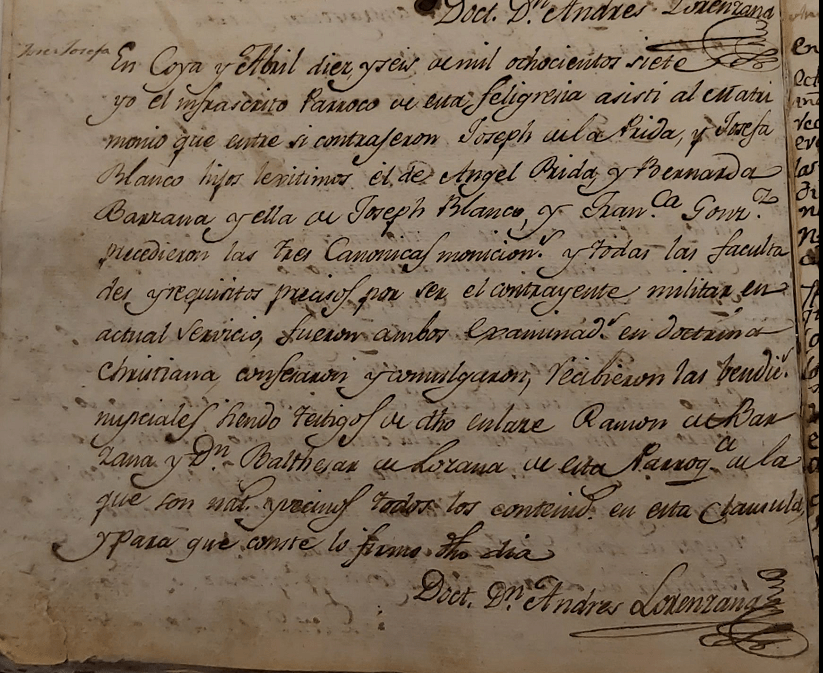 Doct. Dn. Andres Lorenzana
Jose Josefa
En Coya y Abril diez y seis de mil ochocientos siete
yo el infrascrito Parroco de esta feligresia asisti al matri
monio que entre si contrageron Joseph de la Prida, y Josefa
Blanco hijos lexitimos él de Angel Prida, y Bernarda
Barzana y ella de Joseph Blanco, y Fran.ca Gonz.z
precedieron las tres Canonicas monicion.s y todas las faculta
des y requisitos precisos por ser el contrayente militar en
actual servicio, fueron ambos examinad.s en doctrina
christiana, confesaron y comulgaron, recibieron las bendic.s
nupciales siendo testigos de dho enlaze Ramon de Bar
zana y Dn. Balthesar de Lozana de esta Parroq.a de la
que son nat.s y vecinos todos los contenid.s en esta clausula,
y para que conste lo firmo dho dia
Doct. Dn. Andres Lorenzana